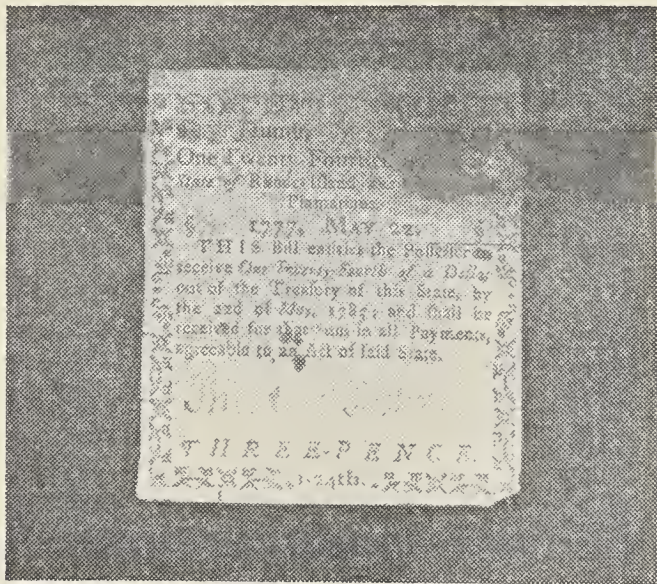 One Twenty Fourth
State of Rhode-Island and
Plantations.
§ 1777. MAY 22. §
THIS Bill entitles the Possessor to
receive One Twenty-Fourth of a Dollar
out of the Treasury of this State, by
the 22d of May, 1785; and shall be
received for that Sum in all Payments,
agreeable to an Act of said State.
THREE-PENCE
1-24th.